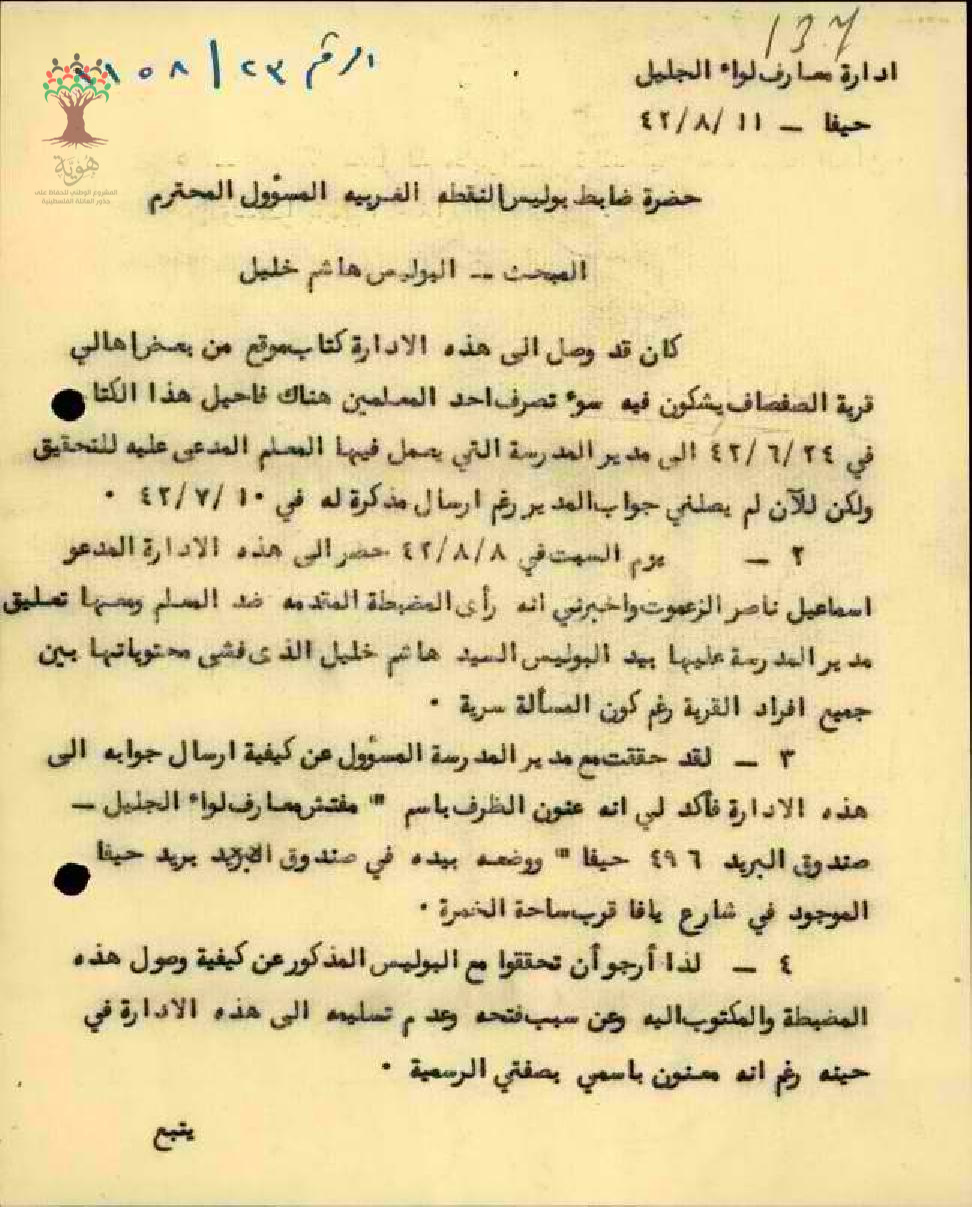 137
الرقم ٢٣ / ١١٥٨
ادارة معارف لواء الجليل
حيفا – ٤٢/٨/١١
هُوِيَّة
المشروع الوطني للحفاظ على
جذور العائلة الفلسطينية
حضرة ضابط بوليس النقطه الغربيه المسؤول المحترم
المبحث – البوليس هاشم خليل
كان قد وصل الى هذه الادارة كتاب موقع من بعض اهالي
قرية الصفصاف يشكون فيه سوء تصرف احد المعلمين هناك فاحيل هذا الكتا
في ٤٢/٦/٢٤ الى مدير المدرسة التي يعمل فيها المعلم المدعى عليه للتحقيق
ولكن للآن لم يصلني جواب المدير رغم ارسال مذكرة له في ٤٢/٧/١٠ ٠
٢ – يوم السبت في ٤٢/٨/٨ حضر الى هذه الادارة المدعو
اسماعيل ناصر الزعموت واخبرني انه رأى المضبطة المتدمه ضد المعلم ومعها تعليق
مدير المدرسة عليها بيد البوليس السيد هاشم خليل الذى فشى محتوياتها بين
جميع افراد القرية رغم كون المسألة سرية ٠
٣ – لقد حققت مع مدير المدرسة المسؤول عن كيفية ارسال جوابه الى
هذه الادارة فأكد لي انه عنون الظرف باسم " مفتش معارف لواء الجليل –
صندوق البريد ٤٩٦ حيفا " ووضعه بيده في صندوق البريد بريد حيفا
الموجود في شارع يافا قرب ساحة الخمرة ٠
٤ – لذا أرجو أن تحققوا مع البوليس المذكور عن كيفية وصول هذه
المضبطة والمكتوب اليه وعن سبب فتحه وعدم تسليمه الى هذه الادارة في
حينه رغم انه معنون باسمي بصفتي الرسمية ٠
يتبع